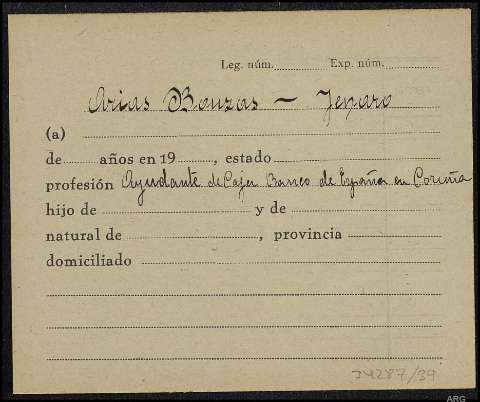 Leg. núm. Exp. núm.
Arias Bouzas — Jenaro
(a)
de años en 19 , estado
profesión Ayudante de Caja Banco de España en Coruña
hijo de y de
natural de , provincia
domiciliado
J4287/39
ARG